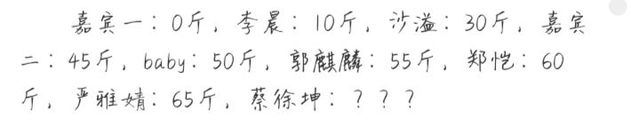 嘉宾一：0斤，李晨：10斤，沙溢：30斤，嘉宾
二：45斤，baby：50斤，郭麒麟：55斤，郑恺：60
斤，严雅婧：65斤，蔡徐坤：？？？